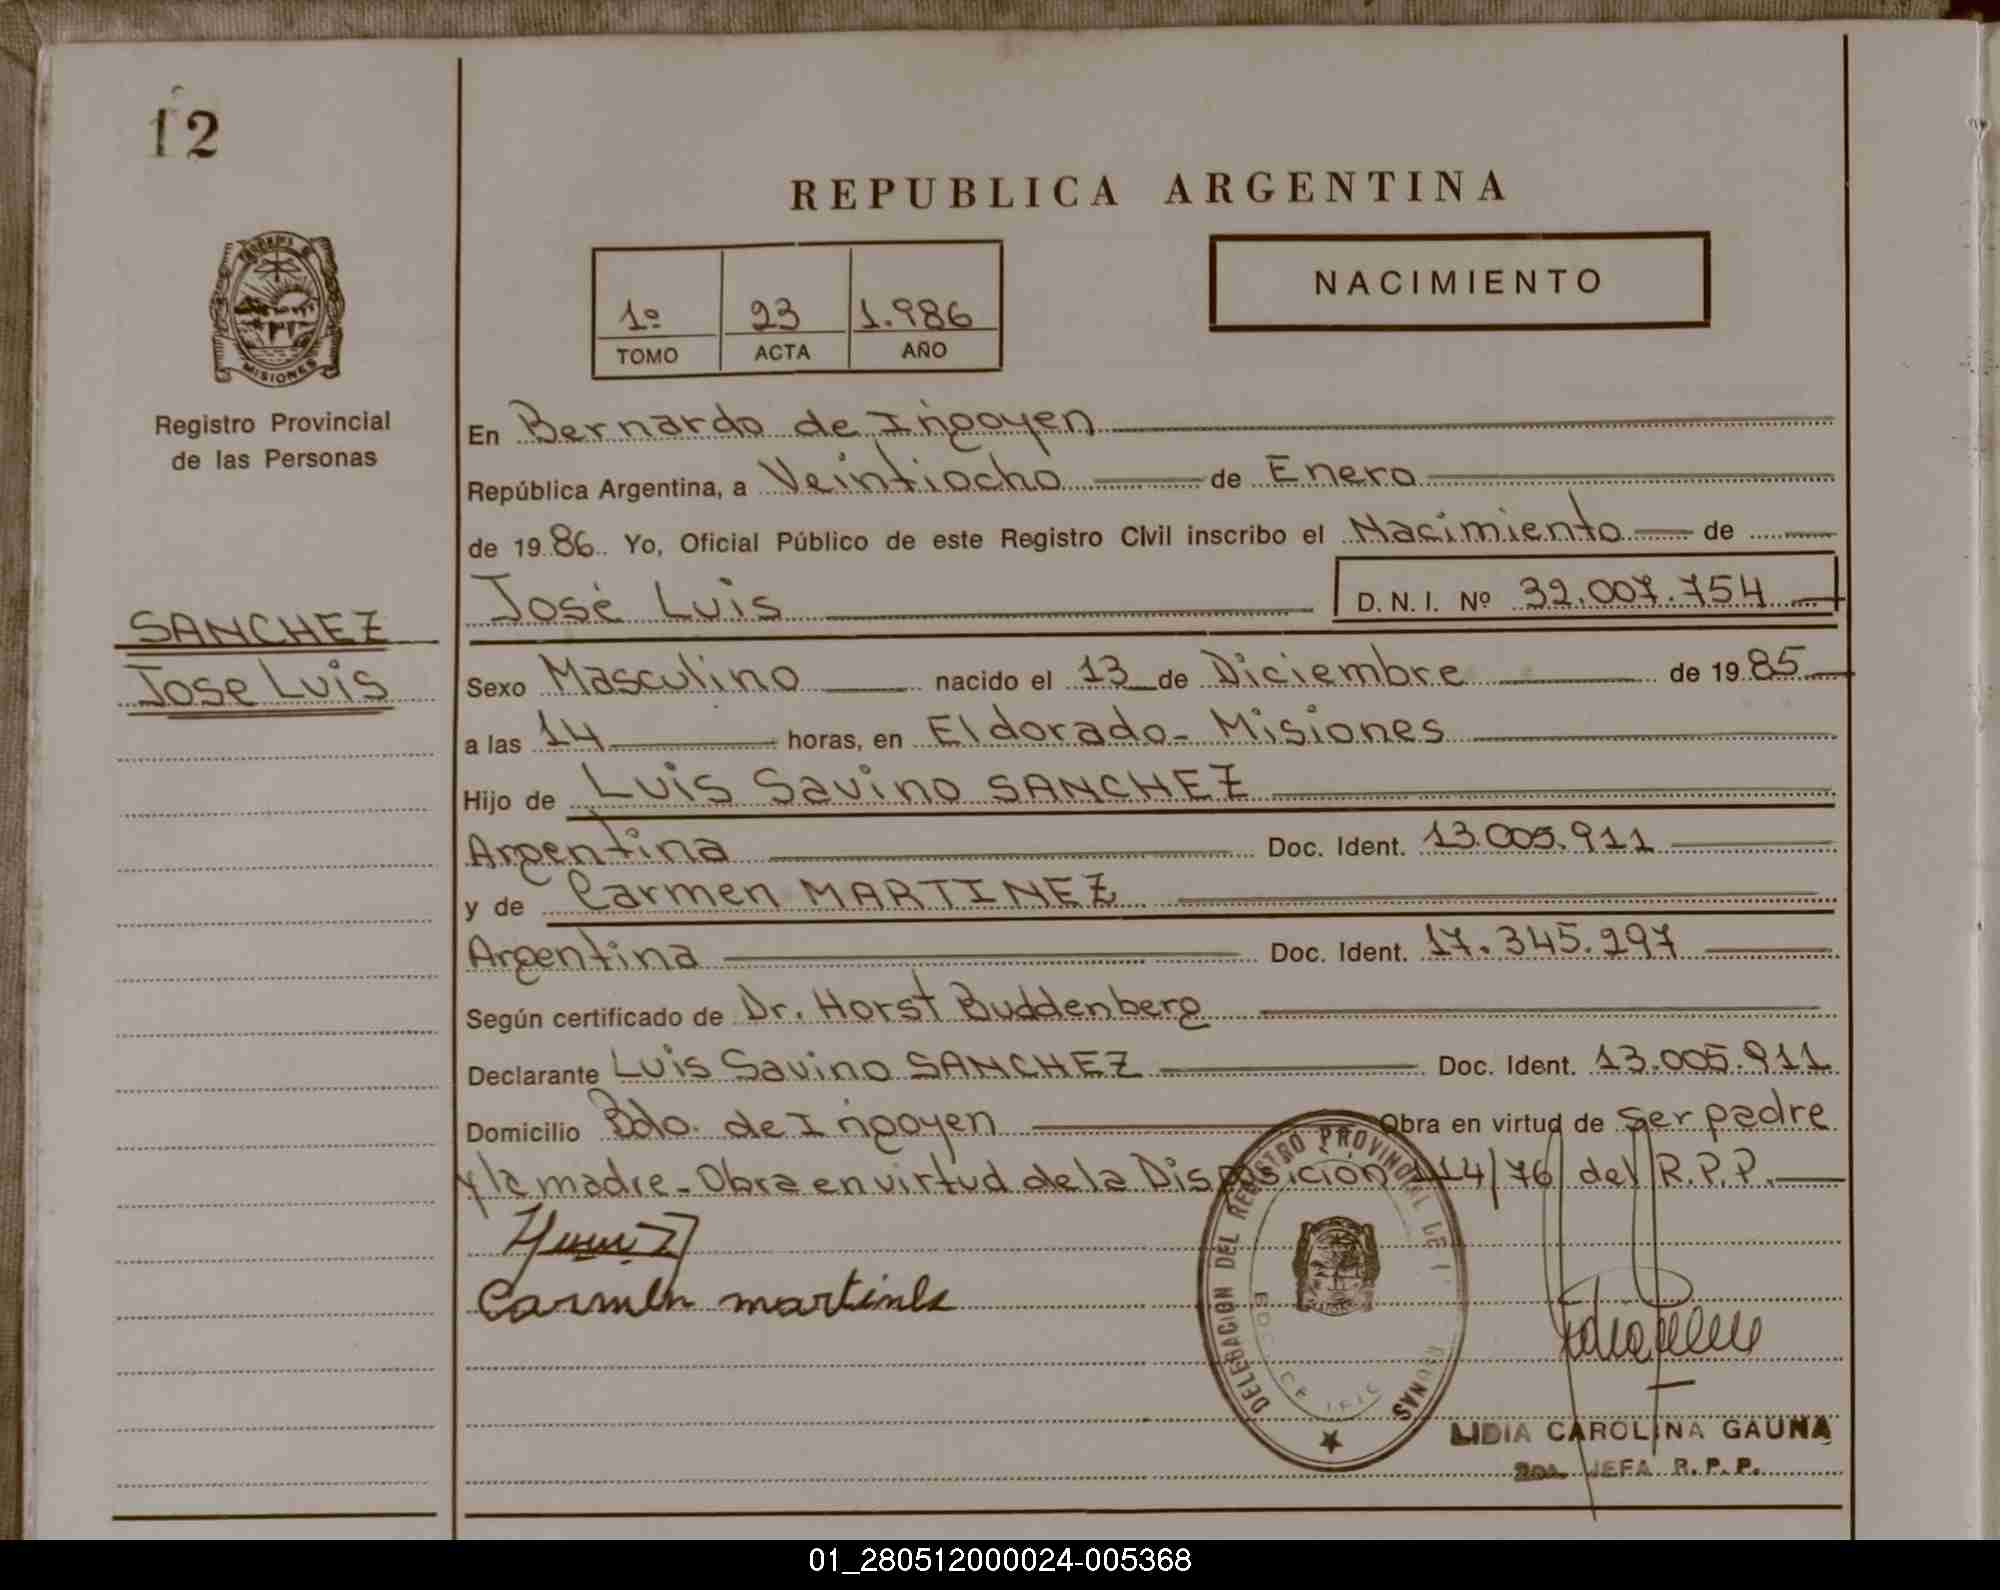 12
REPUBLICA ARGENTINA
NACIMIENTO
1º 23 1.986
TOMO ACTA AÑO
MISIONES
Registro Provincial
de las Personas
En Bernardo de Irigoyen
República Argentina, a Veintiocho de Enero
de 1986. Yo, Oficial Público de este Registro Civil inscribo el Nacimiento de
José Luis D. N. I. Nº 32.007.754
SANCHEZ
Jose Luis
Sexo Masculino nacido el 13 de Diciembre de 1985
a las 14 horas, en Eldorado - Misiones
Hijo de Luis Savino SANCHEZ
Argentina Doc. Ident. 13.005.911
y de Carmen MARTINEZ
Argentina Doc. Ident. 17.345.297
Según certificado de Dr. Horst Buddenberg
Declarante Luis Savino SANCHEZ Doc. Ident. 13.005.911
Domicilio Bdo. de Irigoyen Obra en virtud de ser padre
y la madre - Obra en virtud de la Disposición 114/76 del R.P.P.
Carmen martines
DELEGACION DEL REGISTRO PROVINCIAL DE
LIDIA CAROLINA GAUNA
2DA. JEFA R. P. P.
01_280512000024-005368